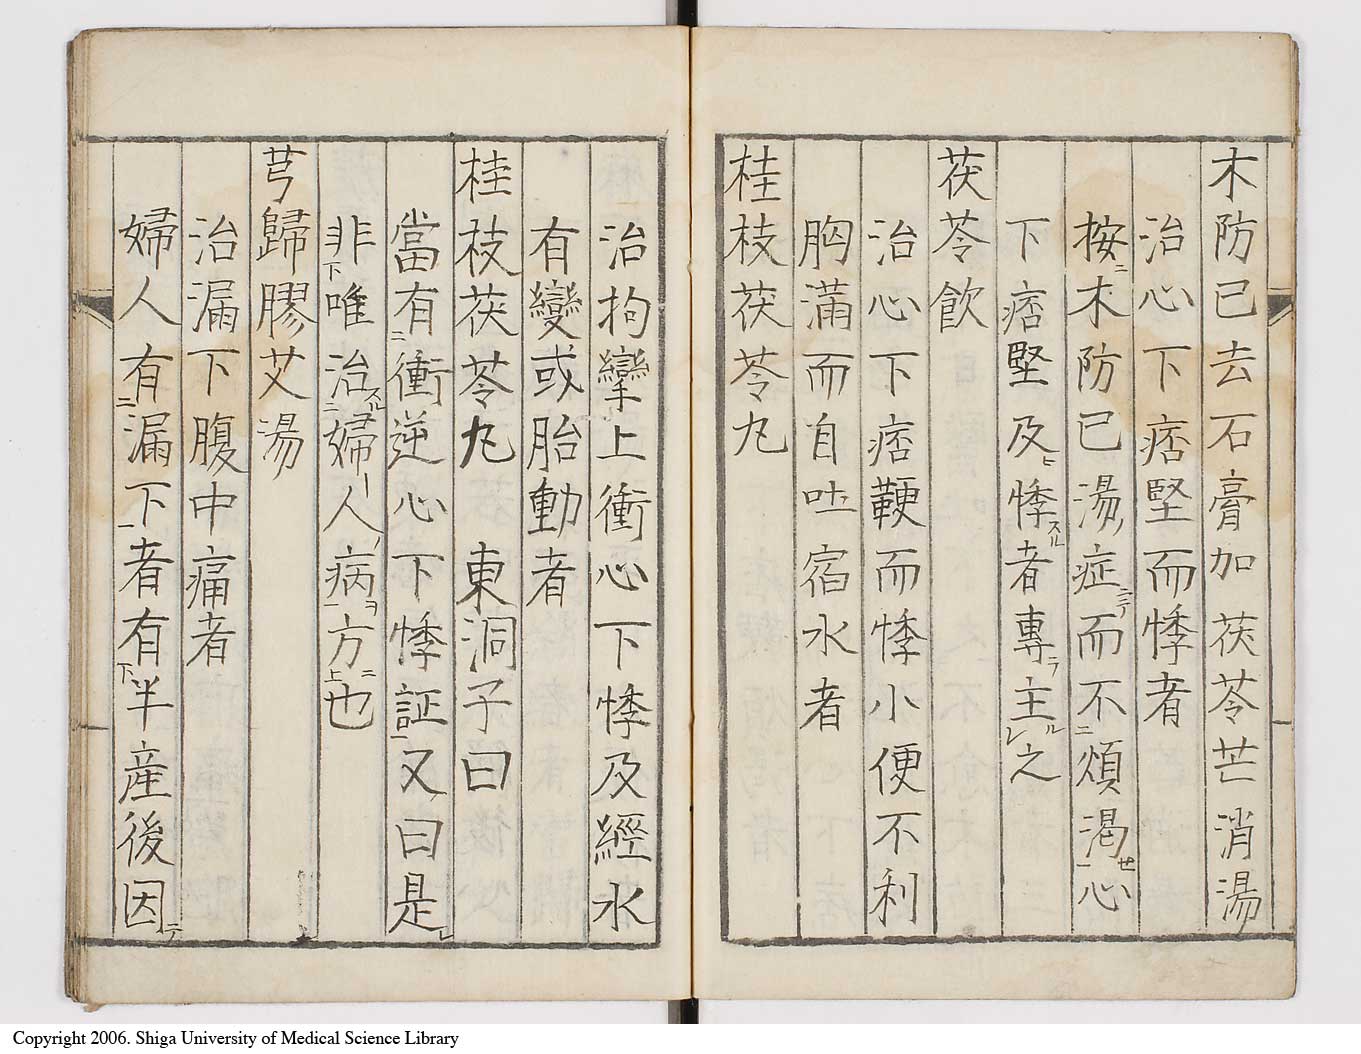 木防已去石膏加茯苓芒消湯
治心下痞堅而悸者
按木防已湯症而不煩渴心
下痞堅及悸者專主之
茯苓飲
治心下痞鞕而悸小便不利
胸滿而自吐宿水者
桂枝茯苓丸
治拘攣上衝心下悸及經水
有變或胎動者
桂枝茯苓丸 東洞子曰
當有衝逆心下悸証又曰是
非唯治婦人病方也
芎歸膠艾湯
治漏下腹中痛者
婦人有漏下者有半產後因
Copyright 2006. Shiga University of Medical Science Library